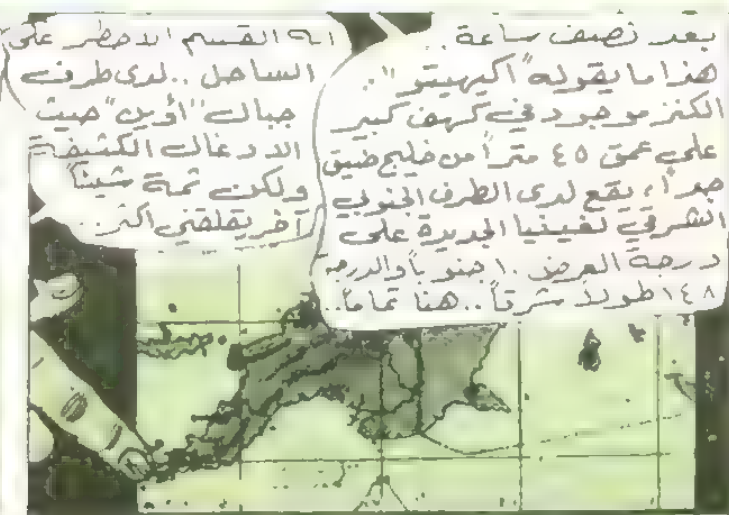 بعد نصف ساعة ..
هذا ما يقوله "اكيهيتو" ..
الكنز موجود في كهف كبير
على عمق ٤٥ متراً من خليج ضيق
جداً، يقع لدى الطرف الجنوبي
الشرقي لغينيا الجديدة على
درجة العرض ١٠ جنوباً والدرجة
١٤٨ طولاً شرقاً .. هنا تماماً ..
انه القسم الاخطر على
الساحل .. لدى طرف
جبال "اوين" حيث
الادغال الكثيفة
ولكن ثمة شيئاً
آخر يقلقني اكثر ..